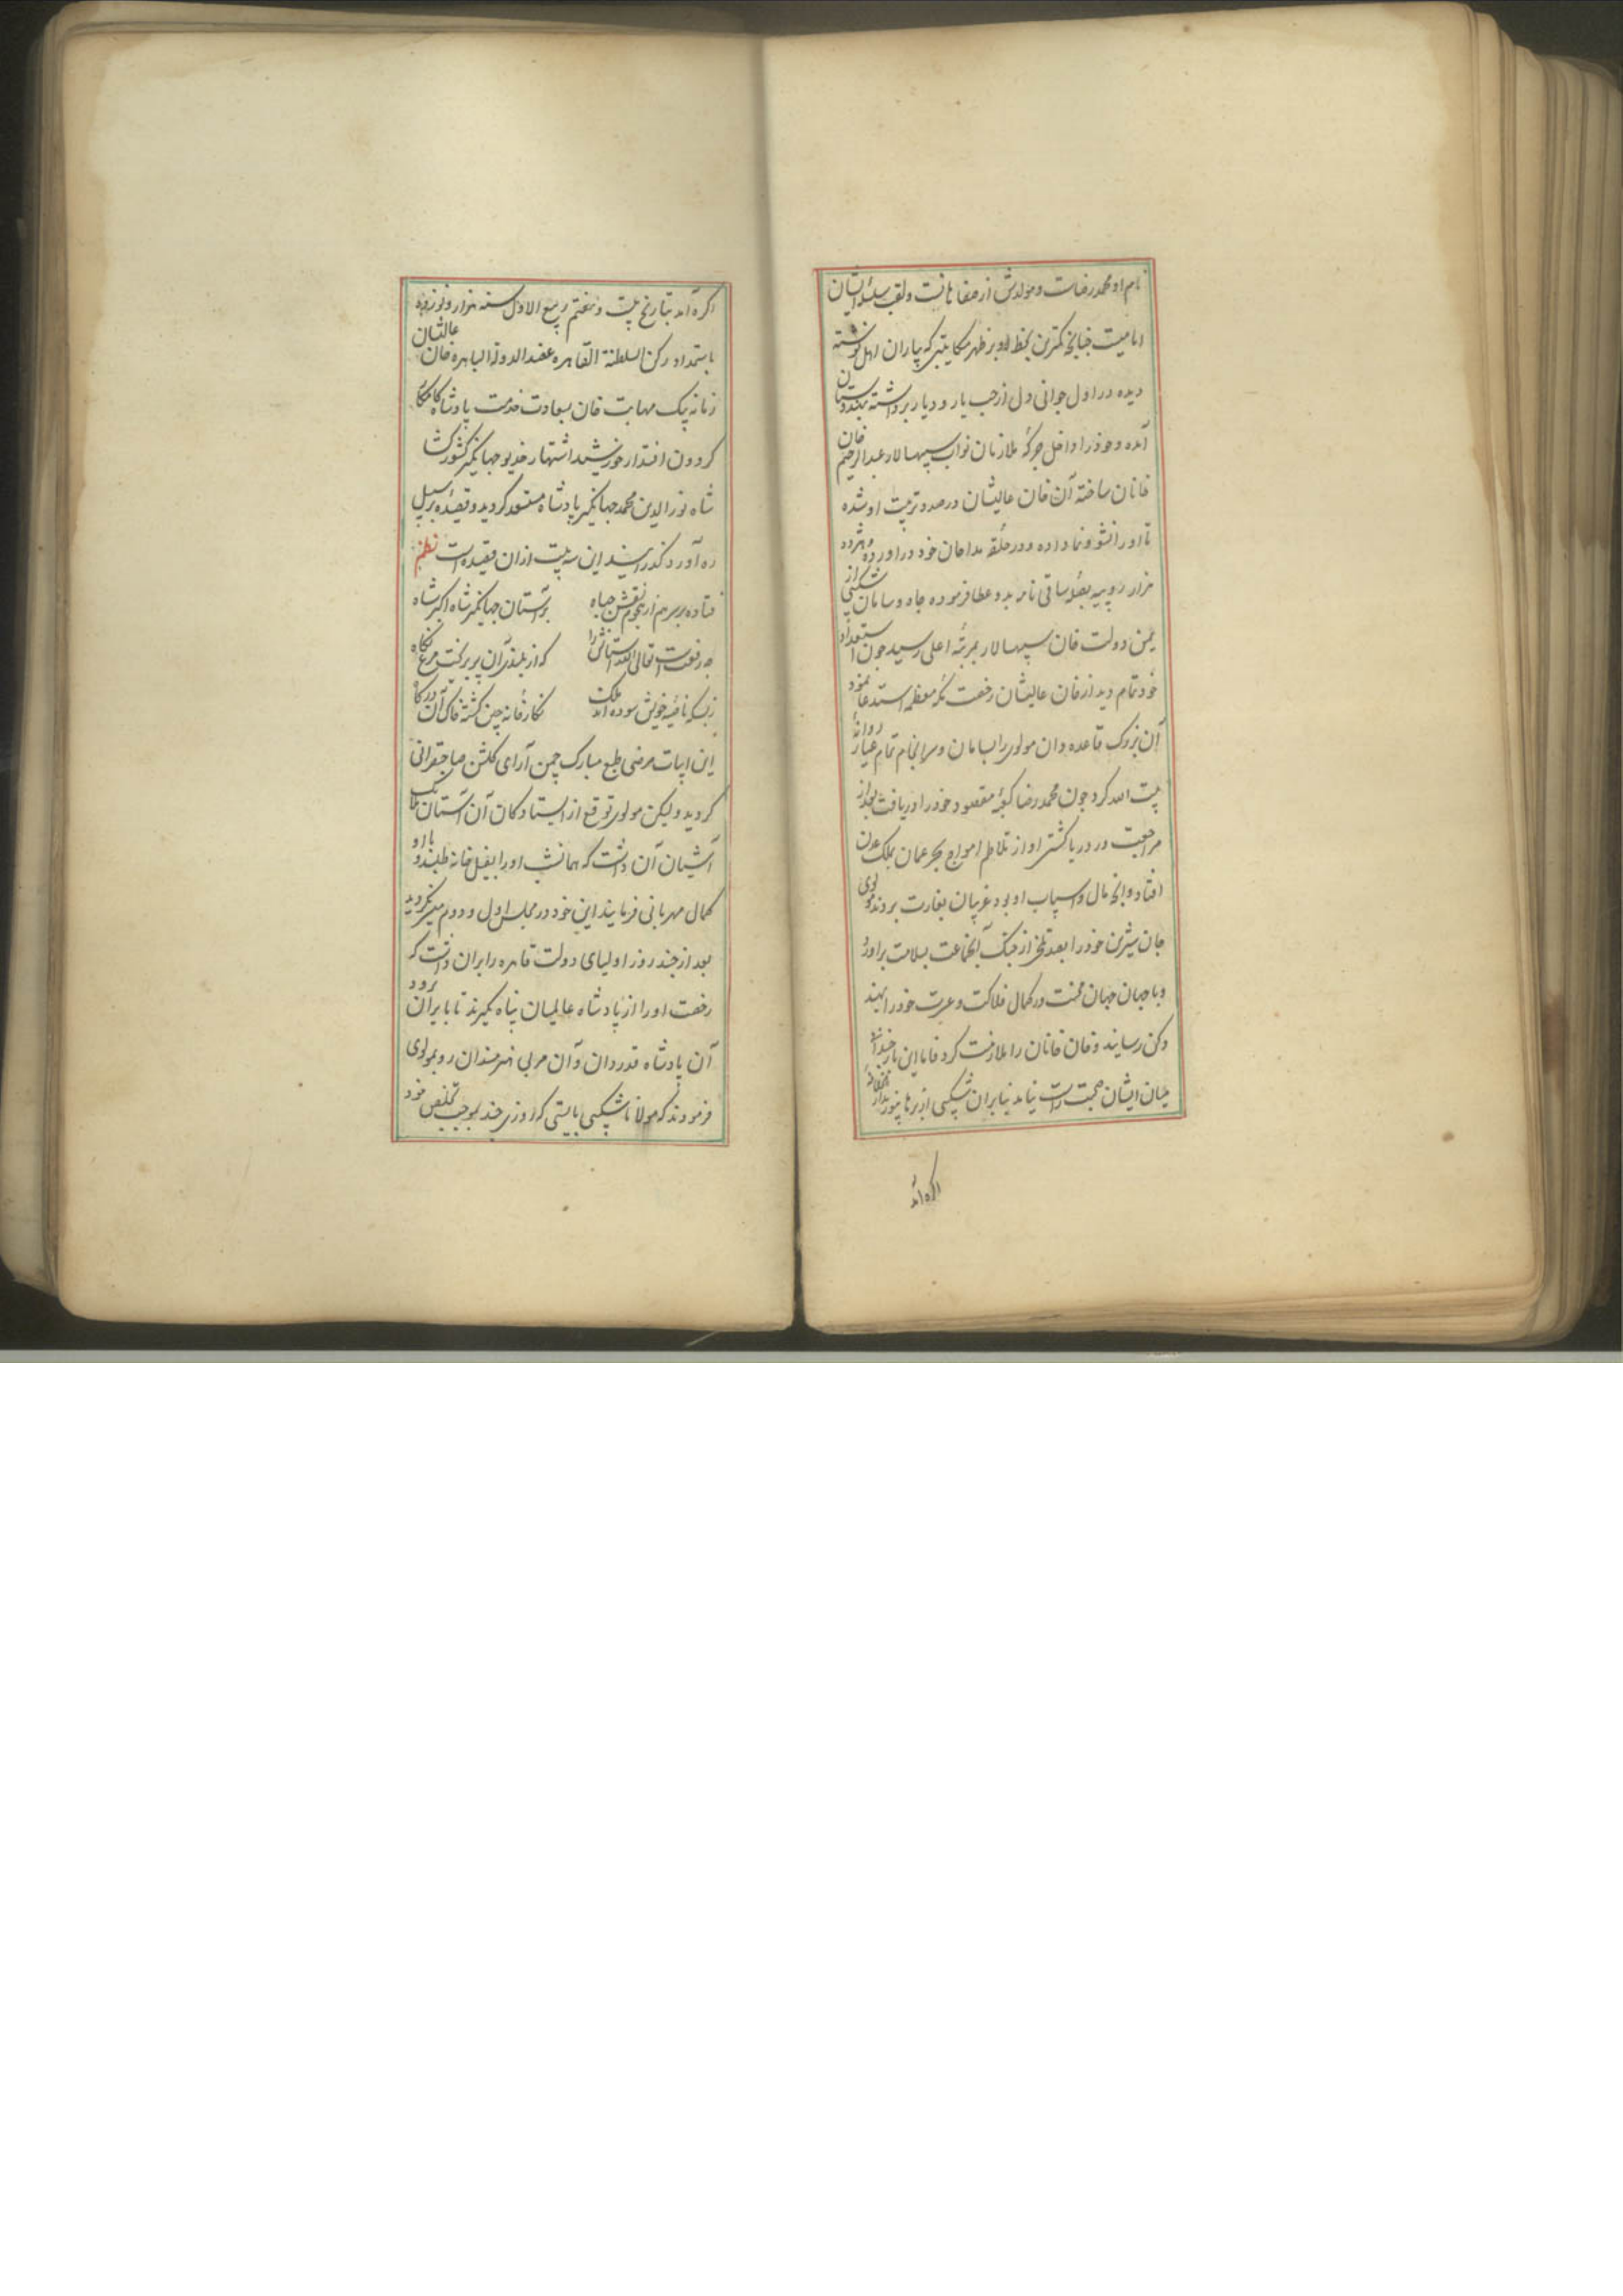 نام او محمدرضاست و مولدش از صفاهانست ولقب سلسله ایشان
امامیست چنانچه کمترین بخط او بر ظهر مکاتیبی که بیاران اهل نوشته
دیده در اول جوانی دل از حب یار و دیار برداشته بهندوستان
آمده و خودرا داخل جرکهٔ ملازمان نواب سپهسالار عبدالرحیم خان
خانان ساخته آن خان عالیشان درصدد تربیت او شده
تا او را نشو و نما داده و در حلقه مداحان خود در اورده و هژده
هزار روپیه بصلهٔ ساقی نامه بدو عطا فرموده جاه و سامان شکیبی از
یمن دولت خان سپهسالار بمرتبهٔ اعلی رسید چون استعداد
خود تمام دید از خان عالیشان رخصت مکه معظمه استدعا نمود
آن بزرک قاعده دان مولوی را بسامان و سرانجام تمام عیار روانهٔ
بیت الله کرد چون محمدرضا کعبهٔ مقصود خودرا دریافت بعد از
مراجعت در دریا کشتی او از تلاطم امواج بحر عمان بملک عدن
افتاد و انچه مال و اسباب او بود عربیان بغارت بردند مولوی
جان شیرین خودرا بعد تلخی از جنک آنجماعت بسلامت براورد
و با جهان جهان محنت در کمال فلاکت و عسرت خودرا بهند
دکن رسانید و خان خانان را ملازمت کرد فاما این بار چندان
میان ایشان صحبت راست نیامد بنابران شکیبی از برهانپور
اکره آمد
اکره آمد بتاریخ بیست و هفتم ربیع الاول سنه هزار و نوزده
باستمداد رکن السلطنة القاهره عضد الدولة الباهره خان عالیشان
زمانه بیک مهابت خان بسعادت خدمت پادشاه کامکار
کردون اقتدار خورشید اشتهار خدیو جهانکیر کشورکشا
شاه نورالدین محمد جهانکیر پادشاه مستسعد کردید و قصیدهٔ برسبیل
ره آورد کذرانید این سه بیت ازان قصیده است نظم
فتاده بر سر هم از هجوم نقش جباه بر آستان جهانکیر شاه اکبر شاه
چه رفعتست تعالی الله استانش را که از بلندی آن پر بریخت مرغ نکاه
زبسکه ناصیه خویش سوده اند ملک نکارخانه چین کشته خاک آن درکاه
این ابیات مرضی طبع مبارک چمن آرای کلشن صاحبقرانی
کردید ولیکن مولوی توقع از ایستادکان آن آستان ملک
آشیان آن داشت که همانشب او را بغسل خانه طلبند و با او
کمال مهربانی فرمایند این خود در مجلس اول و دوم میسر نکردید
بعد از چند روز اولیای دولت قاهره را بران داشت که
رخصت او را از پادشاه عالمیان پناه بکیرند تا بایران رود
آن پادشاه قدردان و آن مربی هنرمندان رو بمولوی
فرمودند که مولانا شکیبی بایستی که روزی چند بموجب تخلص خود